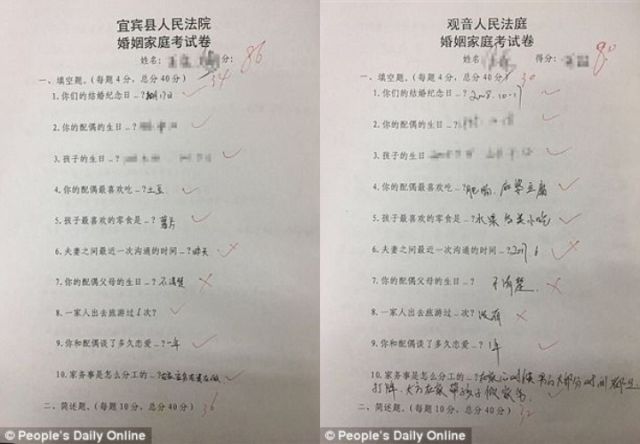 宜宾县人民法院
婚姻家庭考试卷
姓名: 分: 86
一、填空题。(每题4分,总分40分) 34
1.你们的结婚纪念日…?
2.你的配偶的生日…?
3.孩子的生日…?
4.你的配偶最喜欢吃…?土豆
5.孩子最喜欢的零食是…?薯片
6.夫妻之间最近一次沟通的时间…?昨天
7.你的配偶父母的生日…?不清楚
8.一家人出去旅游过 1 次?
9.你和配偶谈了多久恋爱…?一年
10.家务事是怎么分工的…?
二、简述题。(每题10分,总分40分) 36
© People's Daily Online
观音人民法庭
婚姻家庭考试卷
姓名: 得分: 80
一、填空题。(每题4分,总分40分) 30
1.你们的结婚纪念日…?2008.10.17
2.你的配偶的生日…?
3.孩子的生日
4.你的配偶最喜欢吃…?肥肠、麻婆豆腐
5.孩子最喜欢的零食是…?水果 各类小吃
6.夫妻之间最近一次沟通的时间…?2017.6
7.你的配偶父母的生日…? 不清楚.
8.一家人出去旅游过…?没有
9.你和配偶谈了多久恋爱…? 1年
10.家务事是怎么分工的…?在家的时候 男的大部分时间都是
打牌、女方在家带孩子做家务
二、简述题。(每题10分,总分40分) 32
© People's Daily Online